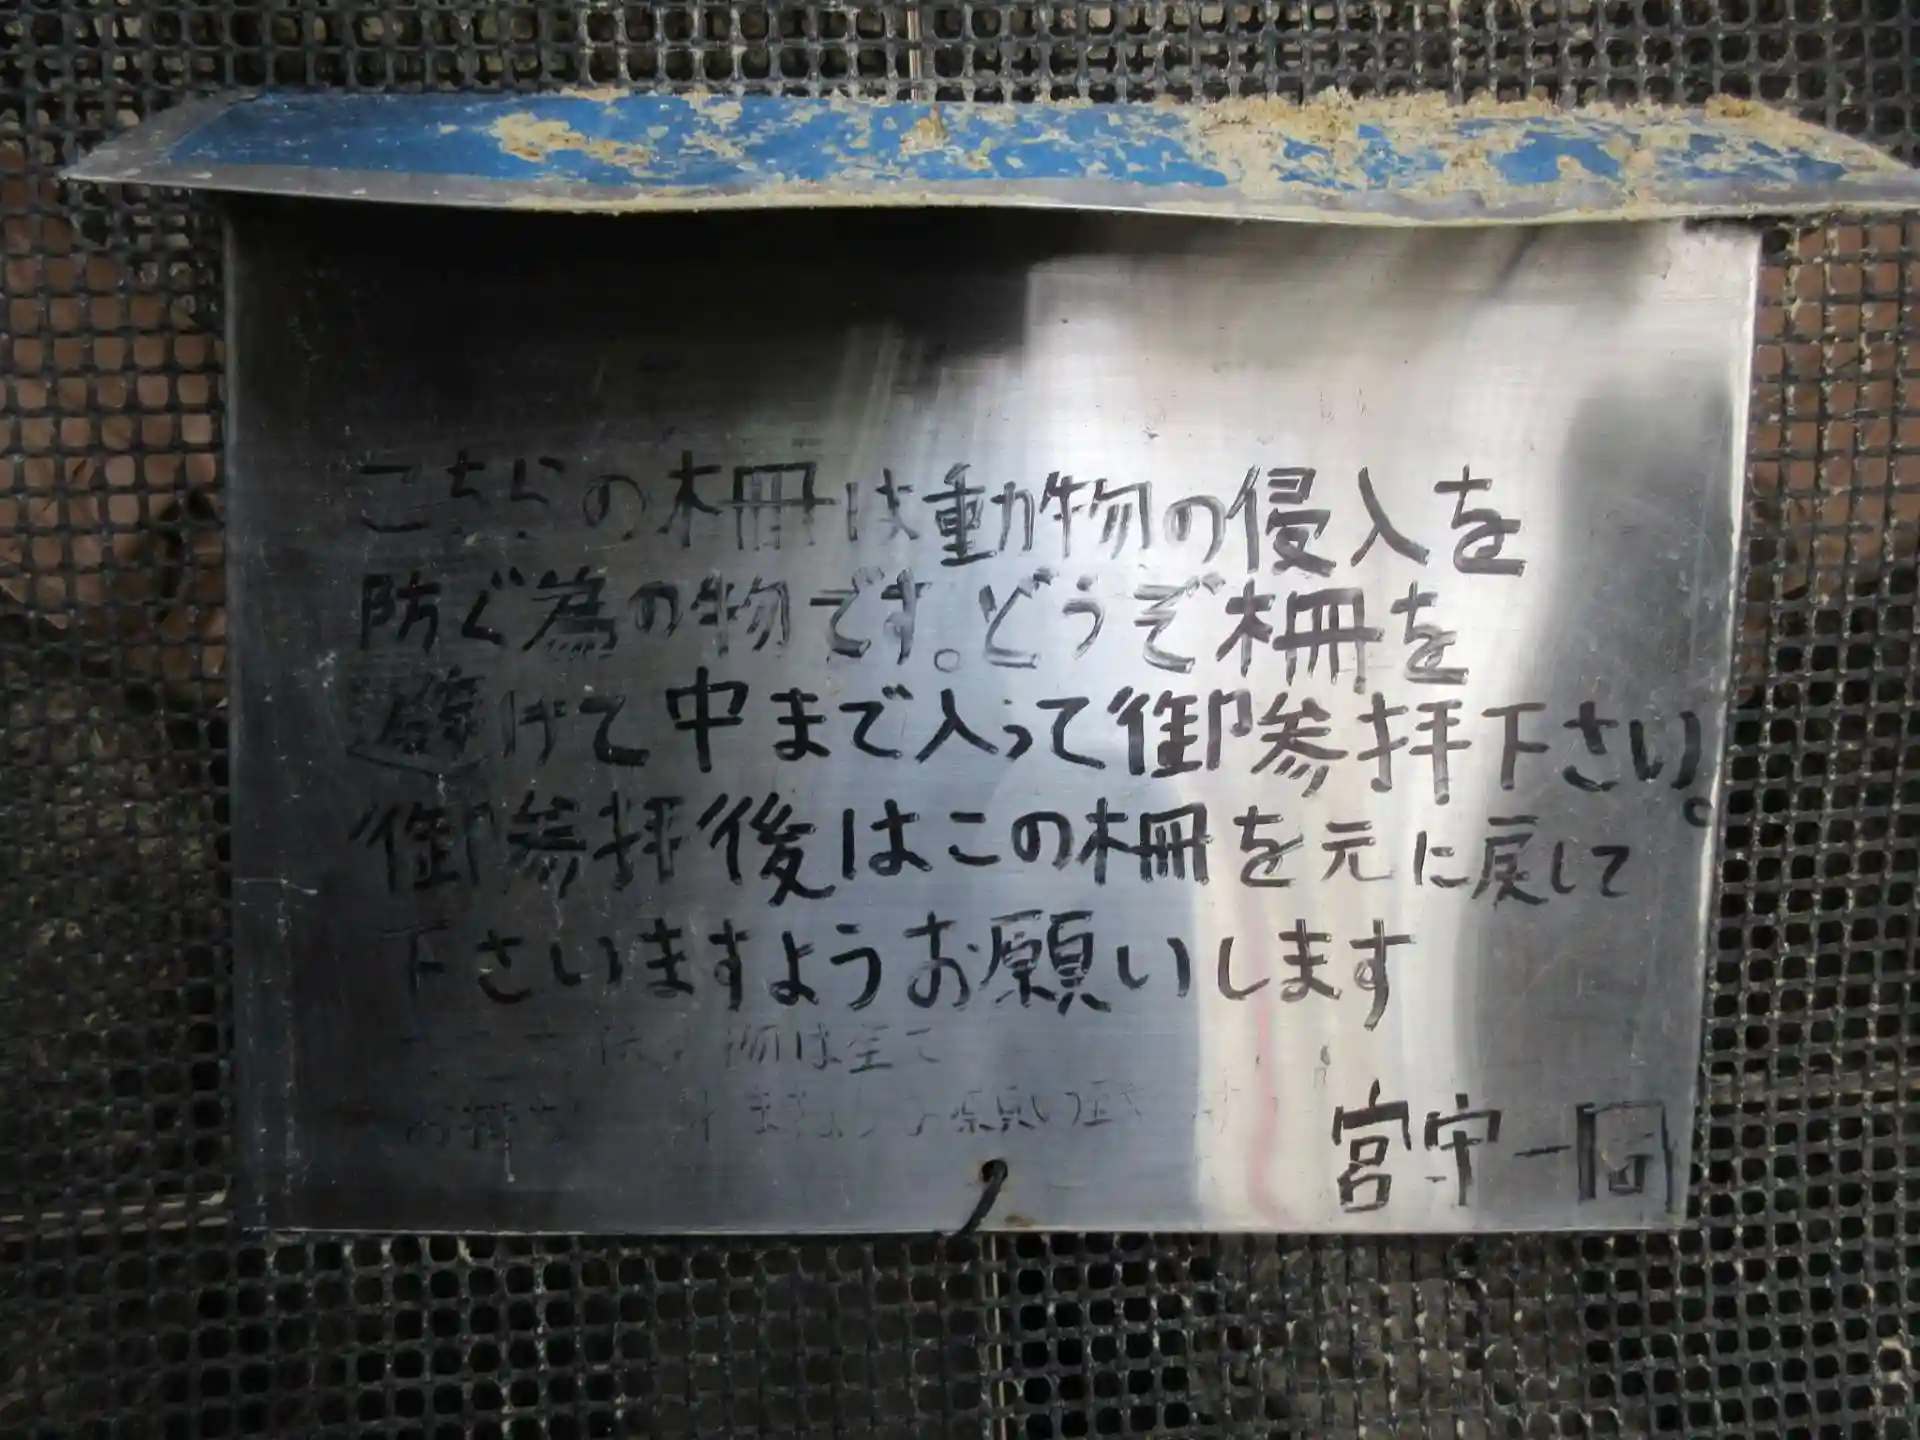 こちらの柵は動物の侵入を
防ぐ為の物です。どうぞ柵を
避けて中まで入って御参拝下さい。
御参拝後はこの柵を元に戻して
下さいますようお願いします
物は全て
ますようお願い
宮守一同